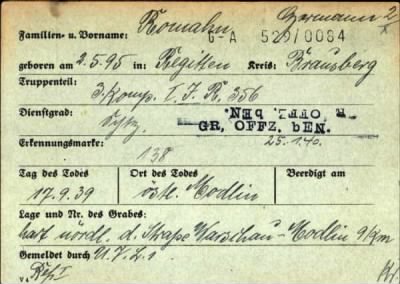 Romahn Hermann 2
Familien- u. Vorname: G-A 529/0064
geboren am 2.5.95 in: Regitten Kreis: Braunsberg
Truppenteil:
3. Komp. I. J. R. 356
Dienstgrad: R. OFFZ. bEN.
GR, OFFZ. bEN.
Erkennungsmarke: 25.1.40.
138
Tag des Todes Ort des Todes Beerdigt am
17.9.39 östl. Modlin
Lage und Nr. des Grabes:
hart nördl. d. Straße Warschau-Modlin 9/Km
Gemeldet durch